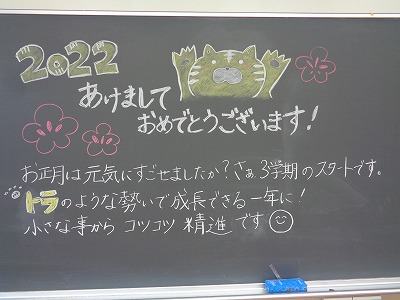 2022
あけまして
おめでとうございます!
お正月は元気にすごせましたか?さぁ3学期のスタートです。
トラのような勢いで成長できる一年に!
小さな事から コツコツ 精進です